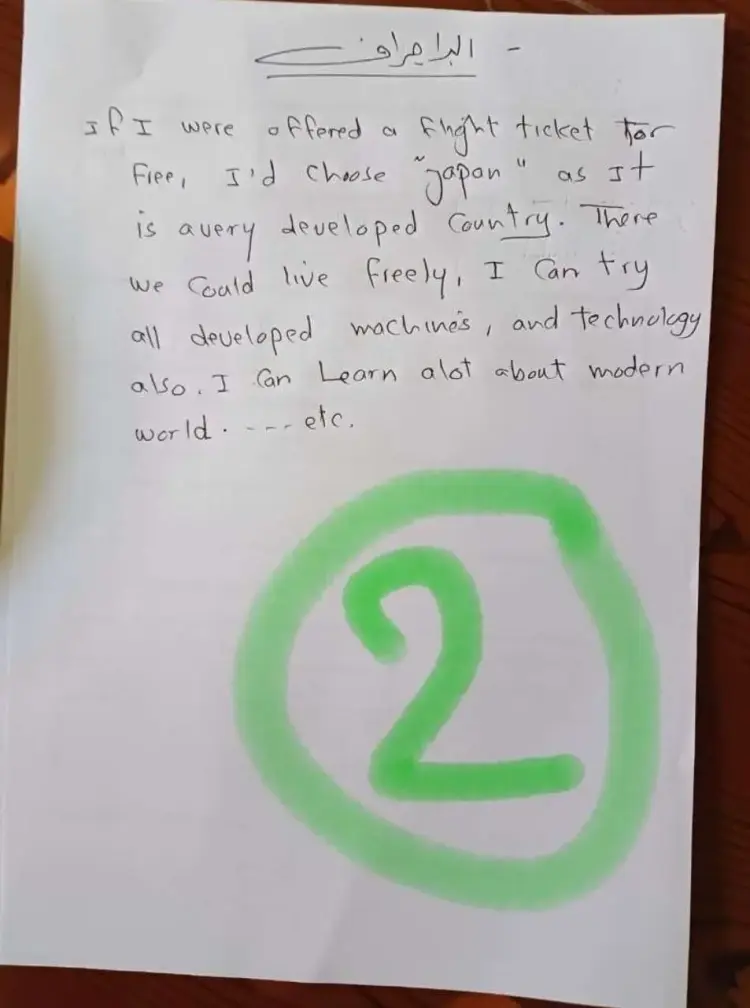 - البراجراف
If I were offered a flight ticket for
free, I'd choose "japan" as It
is avery developed Country. There
we Could live freely, I Can try
all developed machines, and technology
also. I Can Learn alot about modern
world. ---- etc.
2